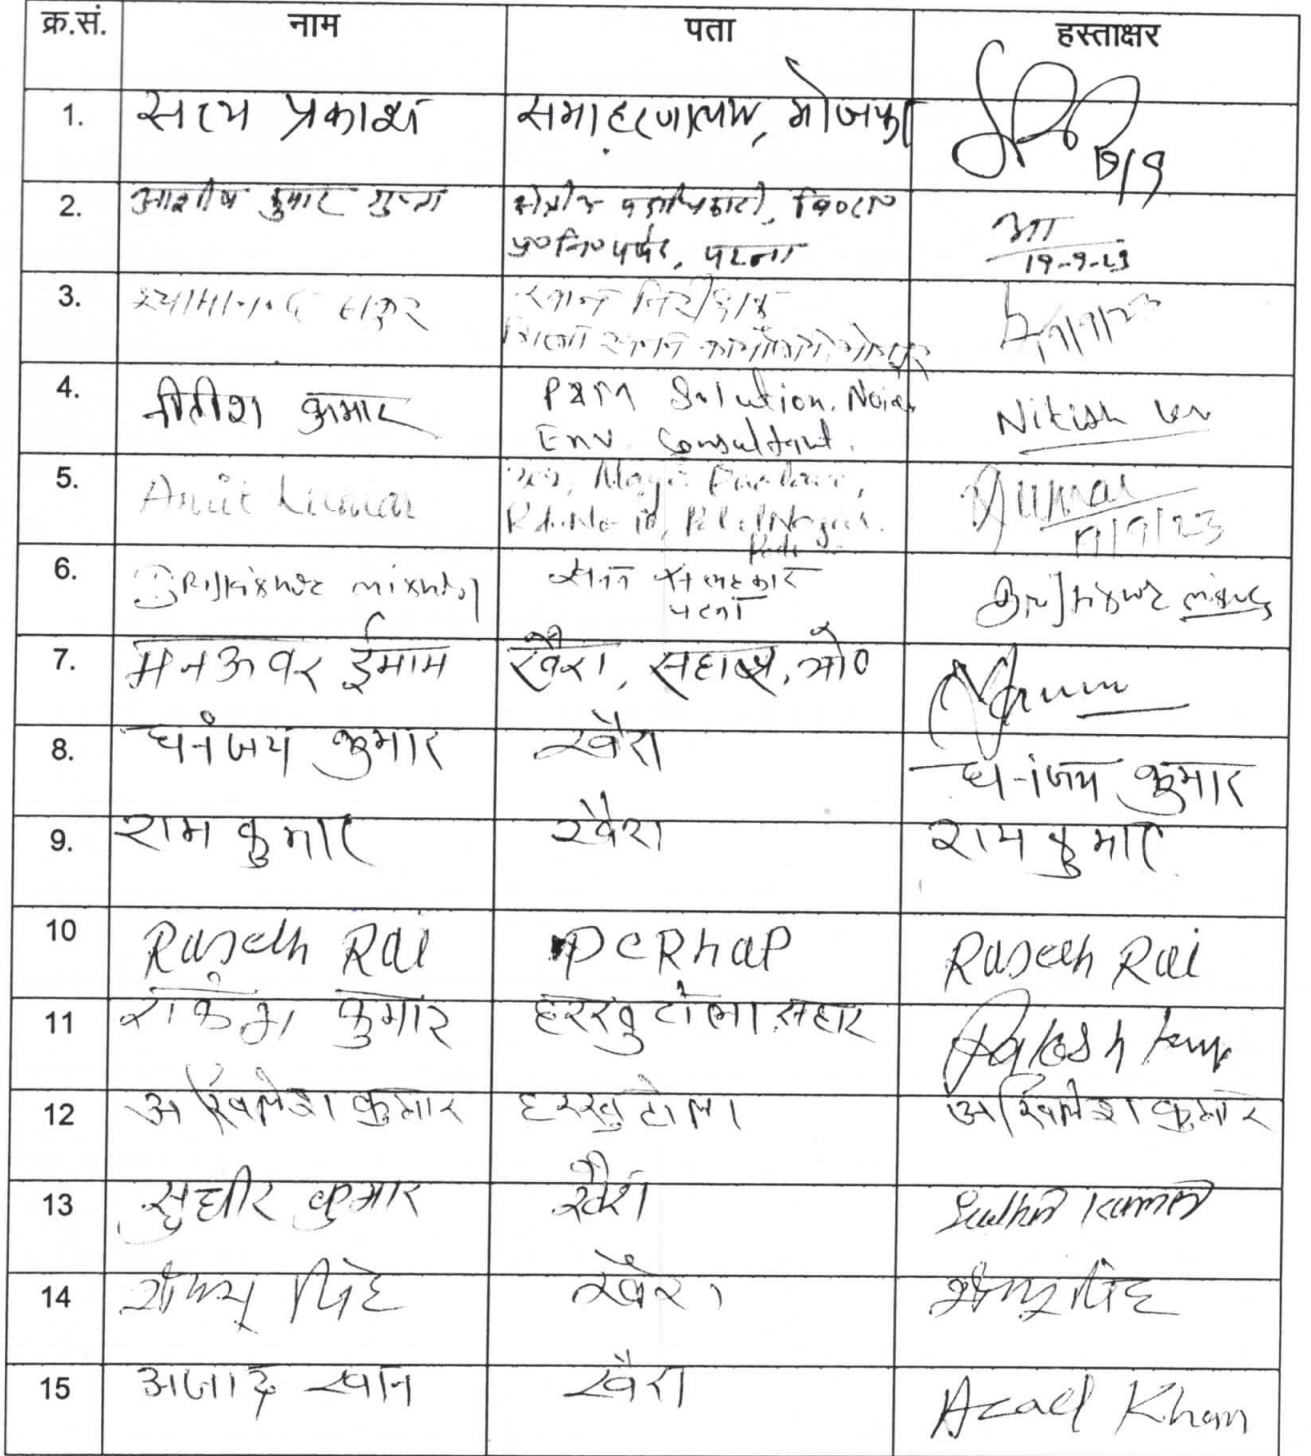 क्र.सं. नाम पता हस्ताक्षर
1. सत्य प्रकाश समाहरणालय, भोजपुर
2. आशीष कुमार गुप्ता क्षेत्रीय पदाधिकारी, बि०रा०
प्र०नि०पर्षद, पटना
19-9-23
3. श्यामानन्द ठाकुर खान निरीक्षक
जिला खनन कार्यालय भोजपुर
4. नीतीश कुमार P&M Solution, Noida Nitish Kr
Env. Consultant.
5. Amit Kumar Kumar
19/9/23
6. Brijkishor पटना Brijkishor
7. मनऊवर ईमाम खैरा, सहार, भो०
8. धनंजय कुमार खैरा धनंजय कुमार
9. राम कुमार खैरा राम कुमार
10 Rasesh Rai PCRhaP Rasesh Rai
11 राकेश कुमार हरखु टोला, सहार Rakesh Kum
12 अखिलेश कुमार हरखु टोला अखिलेश कुमार
13 सुधीर कुमार खैरा Sudhir Kumar
14 सिंह खैरा सिंह
15 अजाद खान खैरा Azad Khan